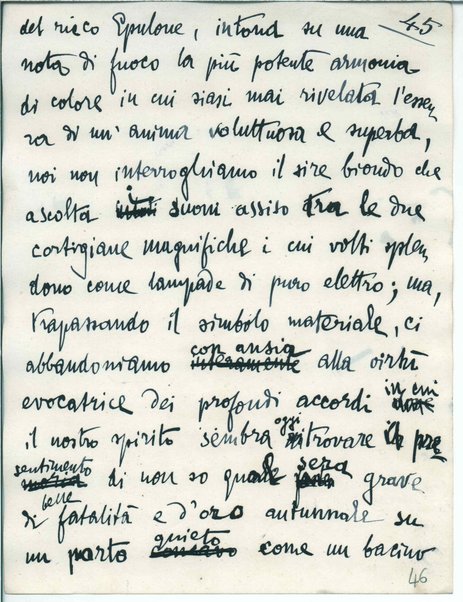 45
del ricco Epulone, intonò su una
nota di fuoco la più potente armonia
di colore in cui siasi mai rivelata l'essen
za di un'anima voluttuosa e superba,
noi non interroghiamo il sire biondo che
ascolta i suoni assiso tra le due
cortigiane magnifiche i cui volti splen
dono come lampade di puro elettro; ma,
trapassando il simbolo materiale, ci
abbandoniamo con ansia alla virtù
evocatrice dei profondi accordi in cui
il nostro spirito sembra oggi trovare il pre=
sentimento di non so quale sera grave
di belle fatalità e d'oro autunnale su
un porto quieto come un bacino
46